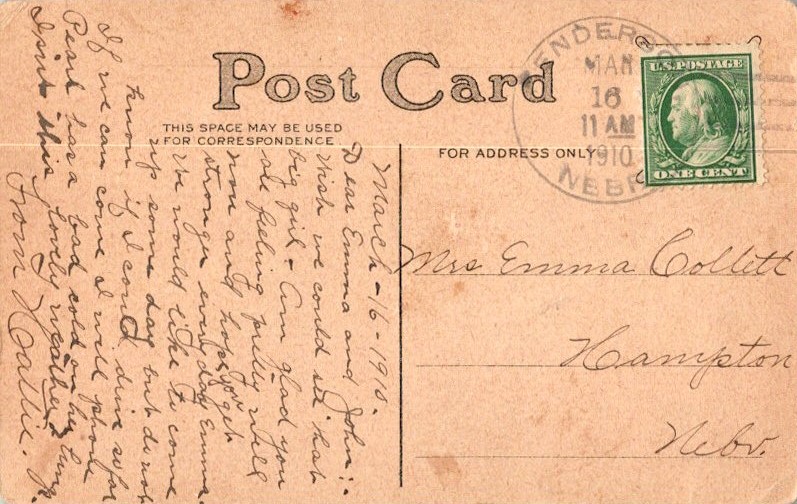 Post Card
THIS SPACE MAY BE USED
FOR CORRESPONDENCE
FOR ADDRESS ONLY
HENDERSO
MAR
16
11 AM
1910
NEBR
U.S. POSTAGE
ONE CENT
Mrs Emma Collett
Hampton
Nebr.
March - 16 - 1910.
Dear Emma and John:-
Wish we could see that
big girl - Am glad you
are feeling pretty well
now and hope you get
stronger every day Emma.
We would like to come
up some day but do not
know if I could drive so far
If we can come I will phone
Pearl has a bad cold on her lungs
Isint this lovely weather
From Hattie. J.